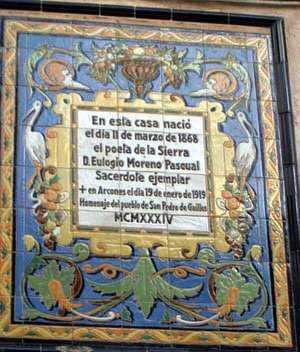 En esta casa nació
el día 11 de marzo de 1868
el poeta de la Sierra
D. Eulogio Moreno Pascual
Sacerdote ejemplar
+ en Arcones el día 19 de enero de 1919
Homenaje del pueblo de San Pedro de Gaillos
MCMXXXIV